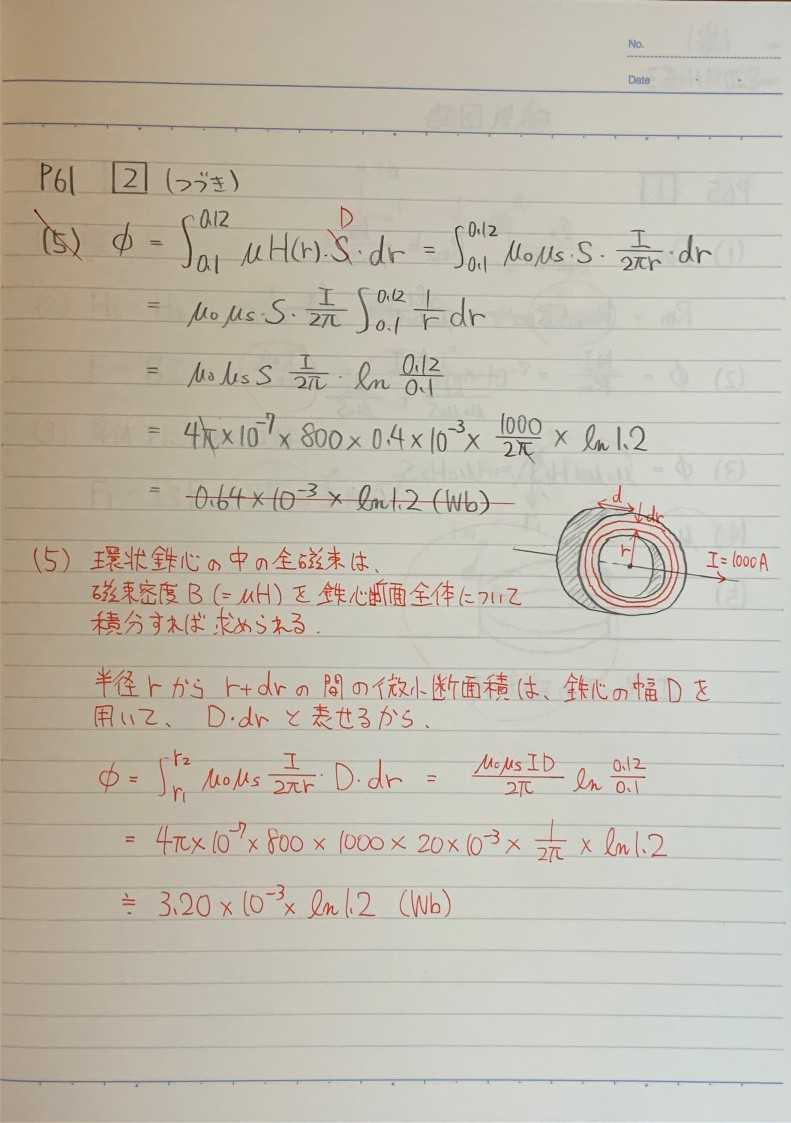 No.
Date
P61 [2] (つづき)
(5) φ = ∫_{0.1}^{0.12} μH(r)·S·dr = ∫_{0.1}^{0.12} μ₀μs·S· I/2πr ·dr
D
= μ₀μs·S· I/2π ∫_{0.1}^{0.12} 1/r dr
= μ₀μs S I/2π · ln 0.12/0.1
= 4π×10⁻⁷ × 800 × 0.4×10⁻³ × 1000/2π × ln 1.2
= 0.64×10⁻³ × ln1.2 (Wb)
d
dr
r
I=1000A
(5) 環状鉄心の中の全磁束は、
磁束密度B(=μH)を鉄心断面全体について
積分すれば求められる.
半径rからr+drの間の微小断面積は、鉄心の幅Dを
用いて、D·drと表せるから.
φ = ∫_{r₁}^{r₂} μ₀μs I/2πr · D·dr = μ₀μsID/2π ln 0.12/0.1
= 4π×10⁻⁷×800×1000×20×10⁻³× 1/2π × ln1.2
≒ 3.20×10⁻³× ln1.2 (Wb)